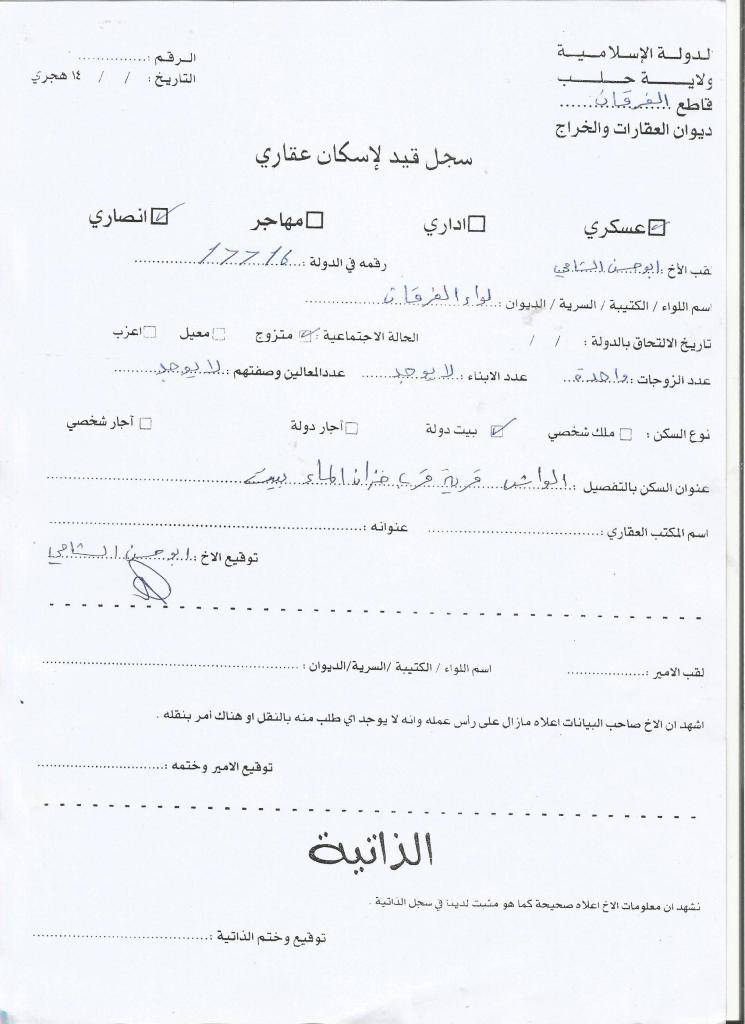 الدولة الإسلامية
ولاية حلب
قاطع الفرقان
ديوان العقارات والخراج
الرقم : ................
التاريخ : / / ١٤ هجري
سجل قيد لإسكان عقاري
عسكري اداري مهاجر انصاري
لقب الأخ : ابو حسن الشامي رقمه في الدولة : 17716
اسم اللواء / الكتيبة / السرية / الديوان : لواء الفرقان
تاريخ الالتحاق بالدولة : / / الحالة الاجتماعية : متزوج معيل اعزب
عدد الزوجات : واحدة عدد الابناء : لا يوجد عددالمعالين وصفتهم : لا يوجد
نوع السكن : ملك شخصي بيت دولة آجار دولة آجار شخصي
عنوان السكن بالتفصيل : قرية قرب خزان الماء
اسم المكتب العقاري : ................ عنوانه : ................
توقيع الاخ : ابو حسن الشامي
لقب الامير : ................ اسم اللواء / الكتيبة /السرية/الديوان : ................
اشهد ان الاخ صاحب البيانات اعلاه مازال على رأس عمله وانه لا يوجد اي طلب منه بالنقل او هناك أمر بنقله .
توقيع الامير وختمه : ................
الذاتية
نشهد ان معلومات الاخ اعلاه صحيحة كما هو مثبت لدينا في سجل الذاتية .
توقيع وختم الذاتية : ................